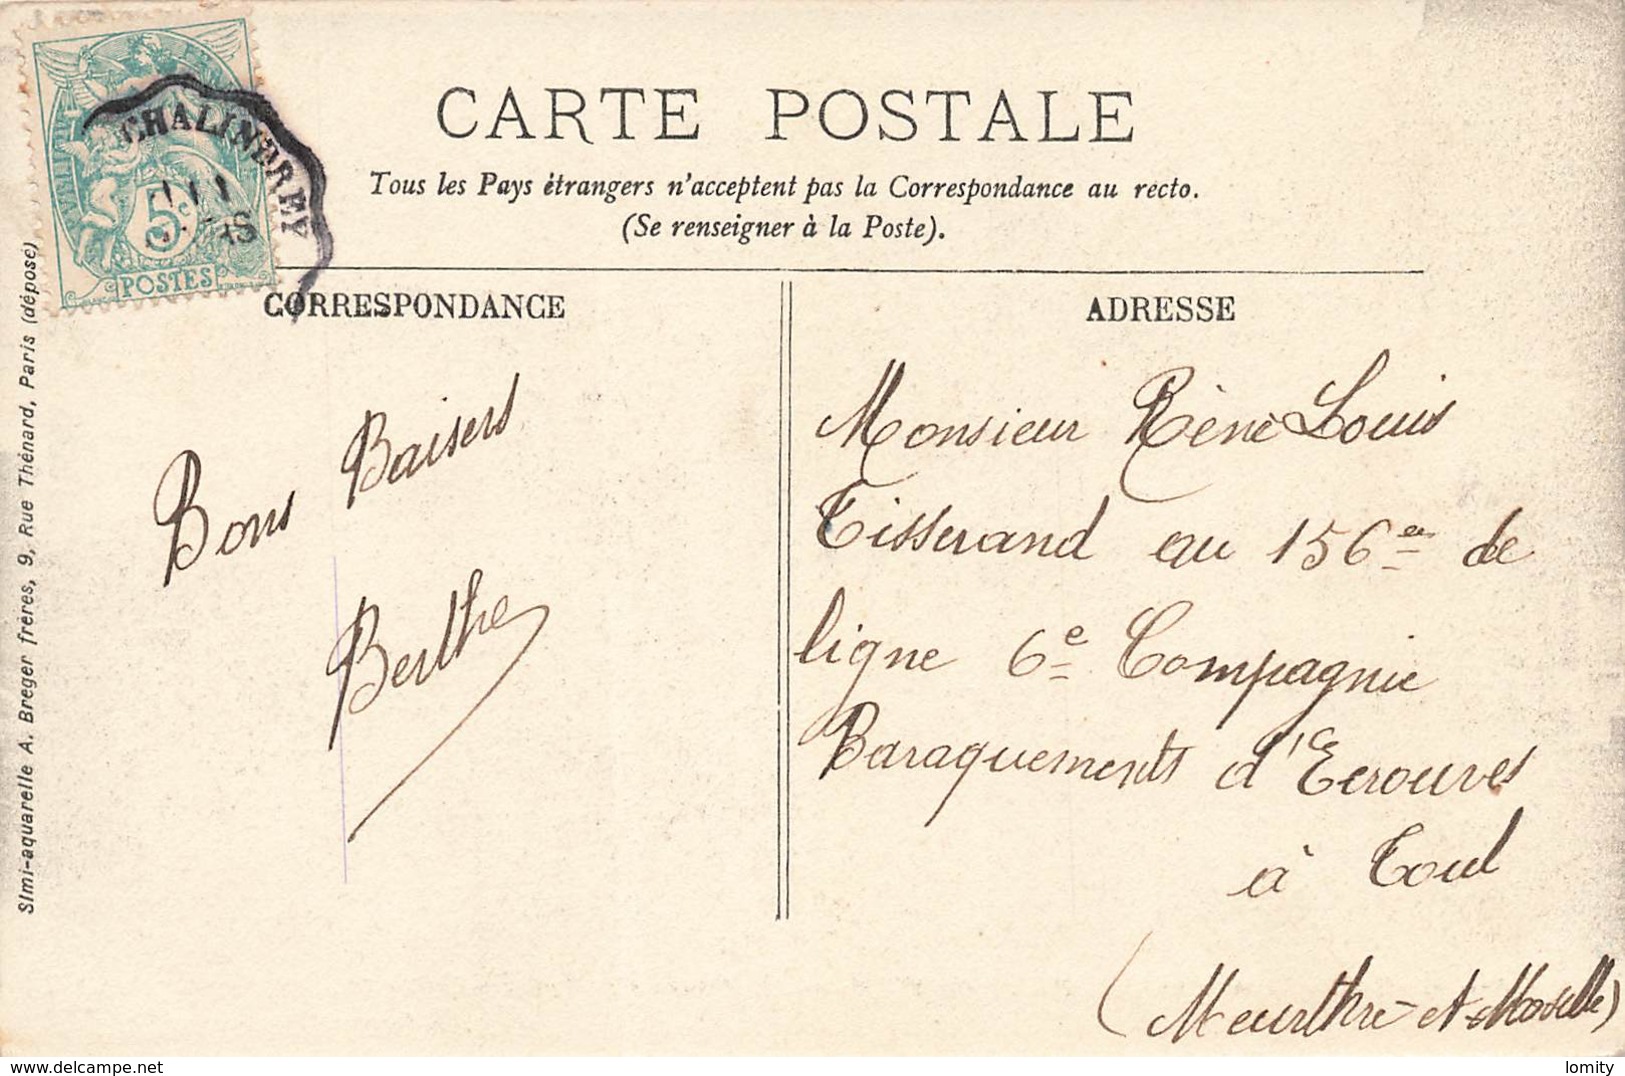 CARTE POSTALE
Tous les Pays étrangers n'acceptent pas la Correspondance au recto.
(Se renseigner à la Poste).
CHALINDREY
5c
POSTES
CORRESPONDANCE
Bons Baisers
Berthe
ADRESSE
Monsieur Rène Louis
Tisserand au 156e de
ligne 6e Compagnie
Baraquements d'Ecrouves
à Toul
(Meurthe-et-Moselle)
Simi-aquarelle A. Breger frères, 9, Rue Thénard, Paris (déposé)
delcampe.net
lomity